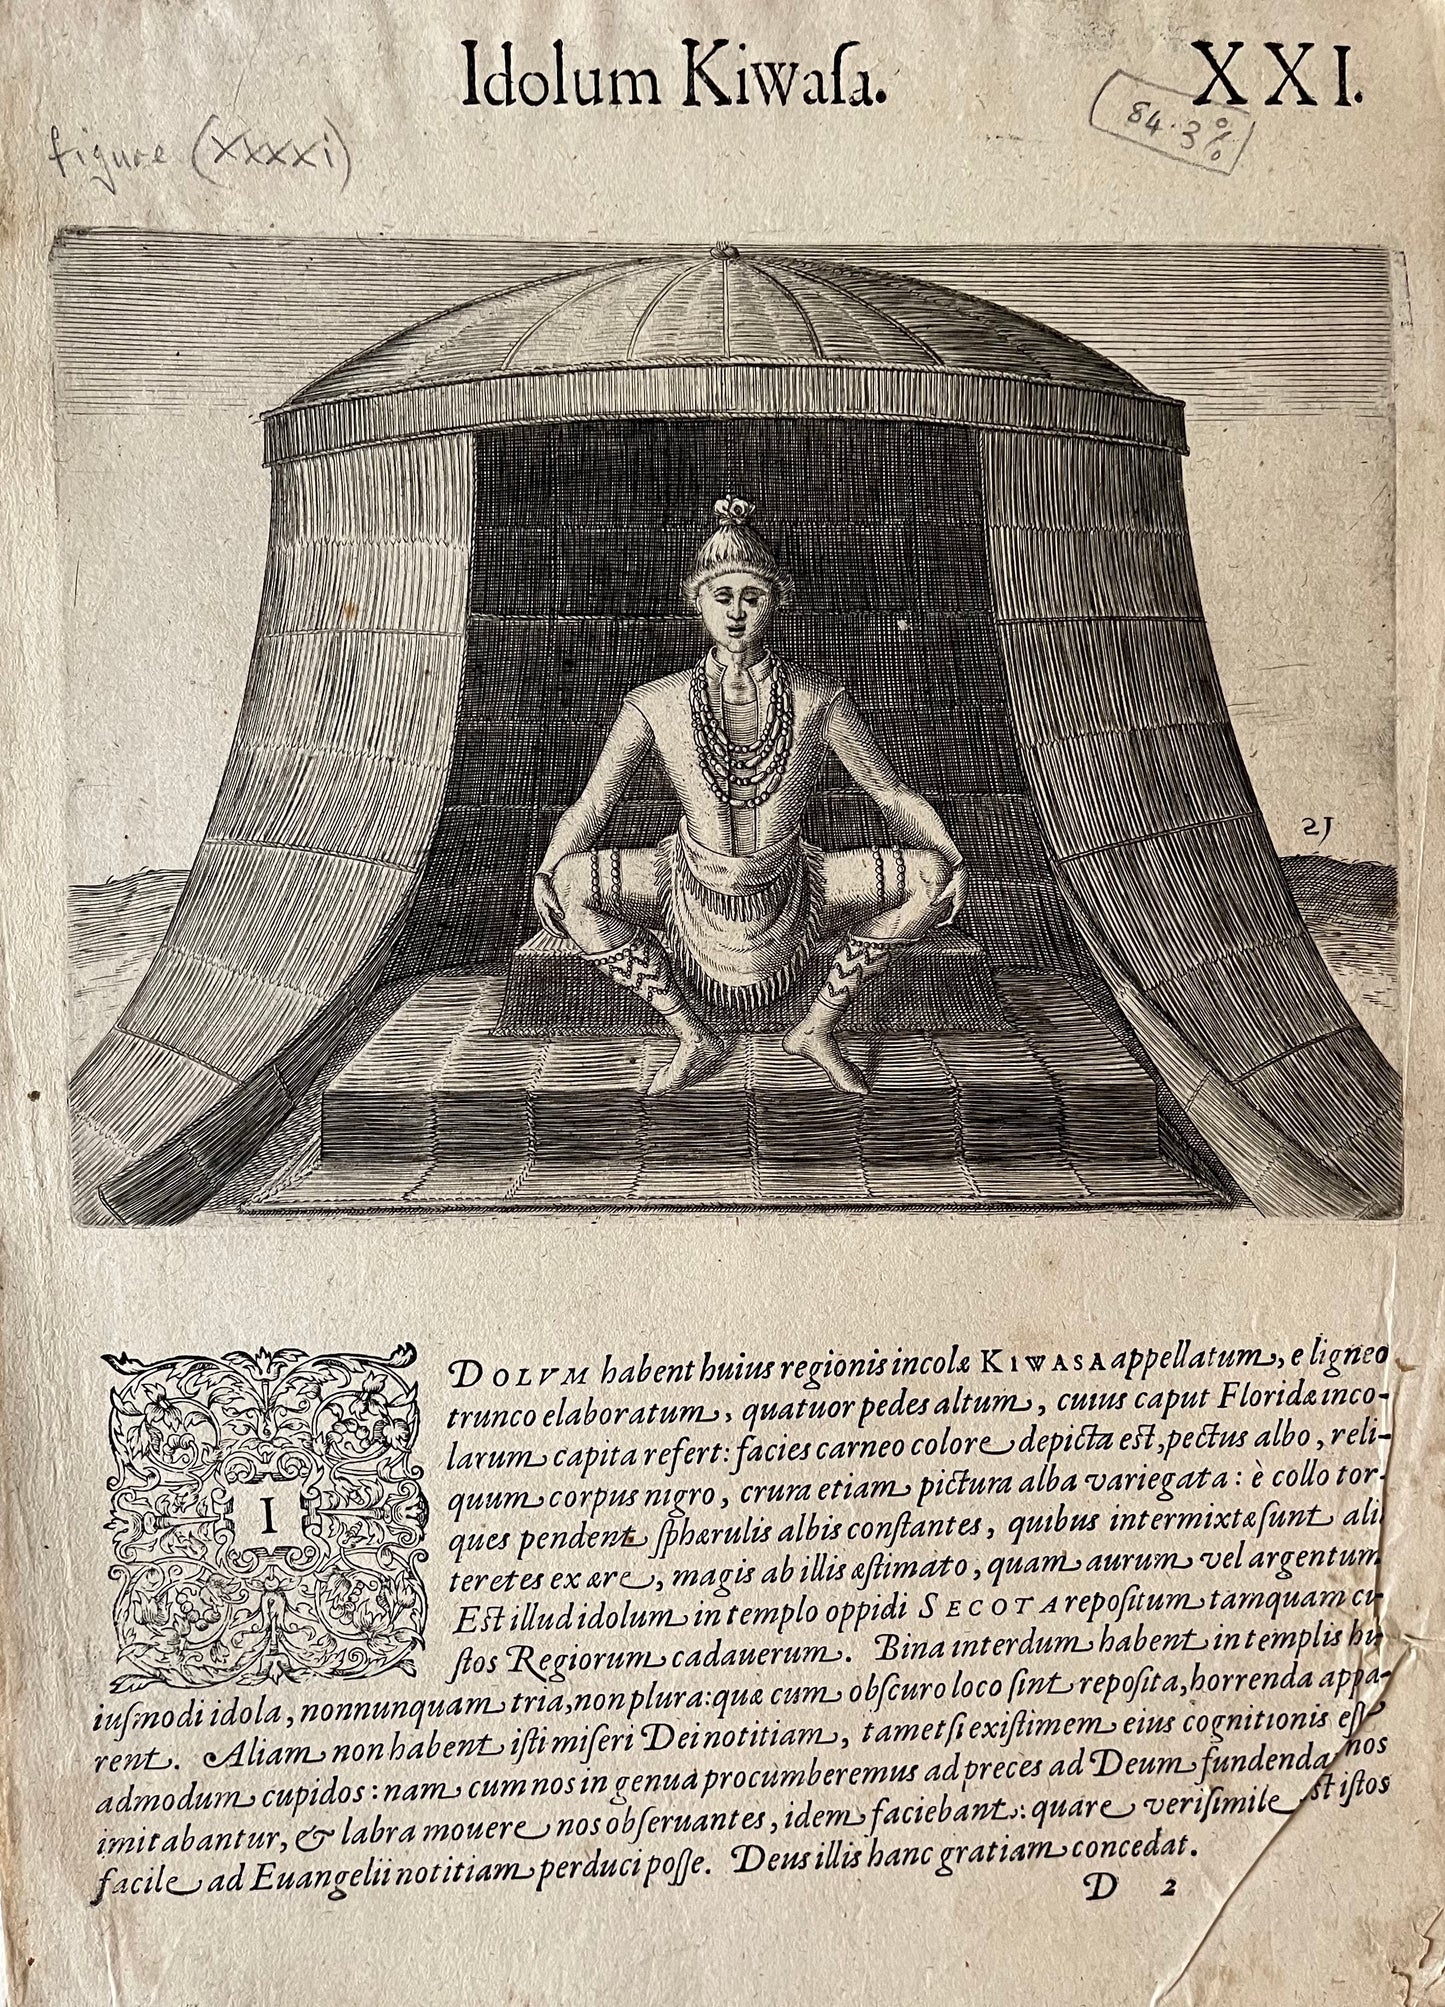 Idolum Kiwaſa.
XXI.
figure (xxxxi)
84.3%
21
I
DOLVM habent huius regionis incolæ KIWASA appellatum, e ligneo
trunco elaboratum, quatuor pedes altum, cuius caput Floridæ inco-
larum capita refert: facies carneo colore depicta est, pectus albo, reli-
quum corpus nigro, crura etiam pictura alba variegata: è collo tor-
ques pendent ſphærulis albis conſtantes, quibus intermixtæ ſunt ali
teretes ex ære, magis ab illis æſtimato, quam aurum vel argentum.
Est illud idolum in templo oppidi SECOTA repoſitum tamquam cu
ſtos Regiorum cadauerum. Bina interdum habent in templis hu
iuſmodi idola, nonnunquam tria, non plura: quæ cum obſcuro loco ſint repoſita, horrenda appa-
rent. Aliam non habent iſti miſeri Dei notitiam, tametſi exiſtimem eius cognitionis eſſe
admodum cupidos: nam cum nos in genua procumberemus ad preces ad Deum fundenda nos
imitabantur, & labra mouere nos obſeruantes, idem faciebant: quare veriſimile st iſtos
facile ad Euangelii notitiam perduci poſſe. Deus illis hanc gratiam concedat.
D 2